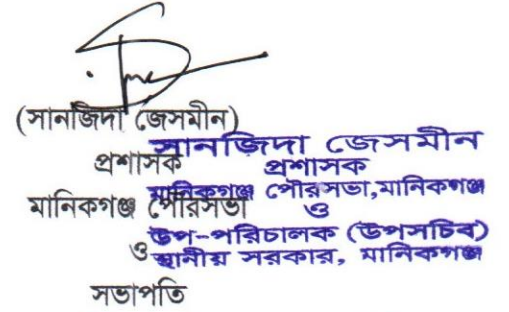 (সানজিদা জেসমীন)
প্রশাসক
মানিকগঞ্জ পৌরসভা
ও
সভাপতি
সানজিদা জেসমীন
প্রশাসক
মানিকগঞ্জ পৌরসভা,মানিকগঞ্জ
ও
উপ-পরিচালক (উপসচিব)
স্থানীয় সরকার, মানিকগঞ্জ